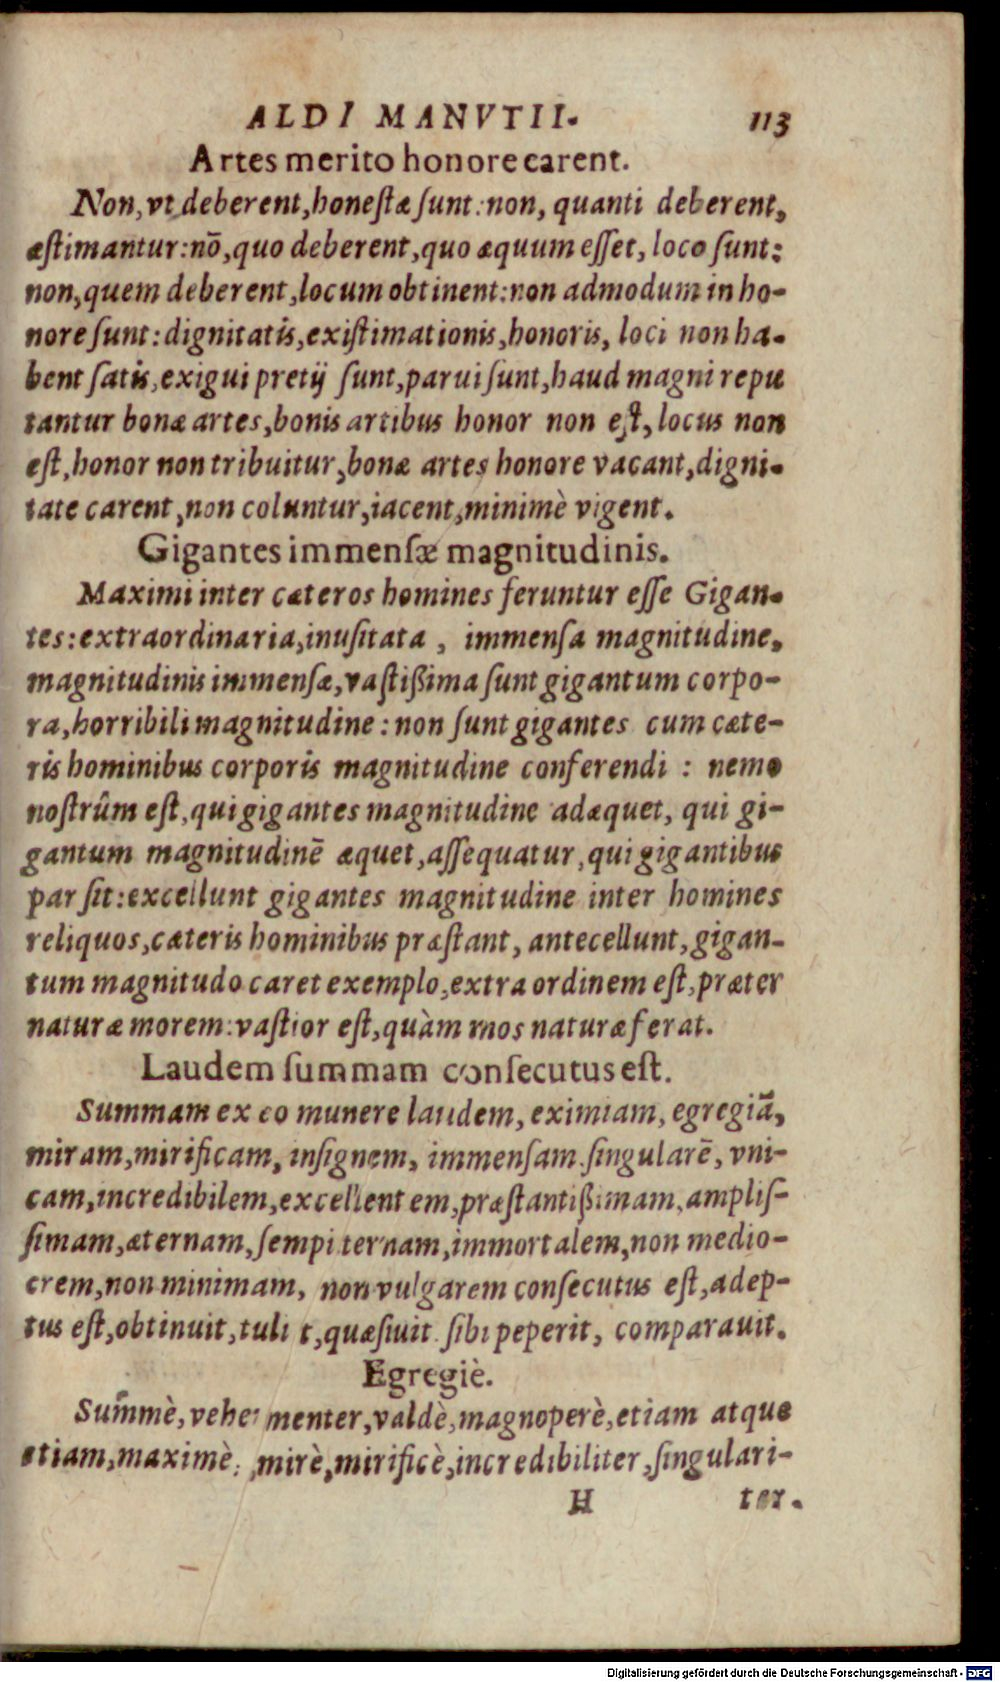 ALDI MANVTII. 113
Artes merito honore carent.
Non, vt deberent, honestæ sunt: non, quanti deberent,
æstimantur: nõ, quo deberent, quo æquum esset, loco sunt:
non, quem deberent, locum obtinent: non admodum in ho-
nore sunt: dignitatis, existimationis, honoris, loci non ha-
bent satis, exigui pretij sunt, parui sunt, haud magni repu
tantur bonæ artes, bonis artibus honor non est, locus non
est, honor non tribuitur, bonæ artes honore vacant, digni-
tate carent, non coluntur, iacent, minimè vigent.
Gigantes immensæ magnitudinis.
Maximi inter cæteros homines feruntur esse Gigan-
tes: extraordinaria, inusitata, immensa magnitudine,
magnitudinis immensæ, vastißima sunt gigantum corpo-
ra, horribili magnitudine: non sunt gigantes cum cæte-
ris hominibus corporis magnitudine conferendi: nemo
nostrûm est, qui gigantes magnitudine adæquet, qui gi-
gantum magnitudinē æquet, assequatur, qui gigantibus
par sit: excellunt gigantes magnitudine inter homines
reliquos, cæteris hominibus præstant, antecellunt, gigan-
tum magnitudo caret exemplo, extra ordinem est, præter
naturæ morem: vastior est, quàm mos naturæ ferat.
Laudem summam consecutus est.
Summam ex eo munere laudem, eximiam, egregiã,
miram, mirificam, insignem, immensam, singularē, vni-
cam, incredibilem, excellentem, præstantißimam, amplis-
simam, æternam, sempiternam, immortalem, non medio-
crem, non minimam, non vulgarem consecutus est, adep-
tus est, obtinuit, tulit, quæsiuit sibi peperit, comparauit.
Egregiè.
Sum̃mè, vehementer, valdè, magnoperè, etiam atque
etiam, maximè, mirè, mirificè, incredibiliter, singulari-
H ter.
Digitalisierung gefördert durch die Deutsche Forschungsgemeinschaft - DFG